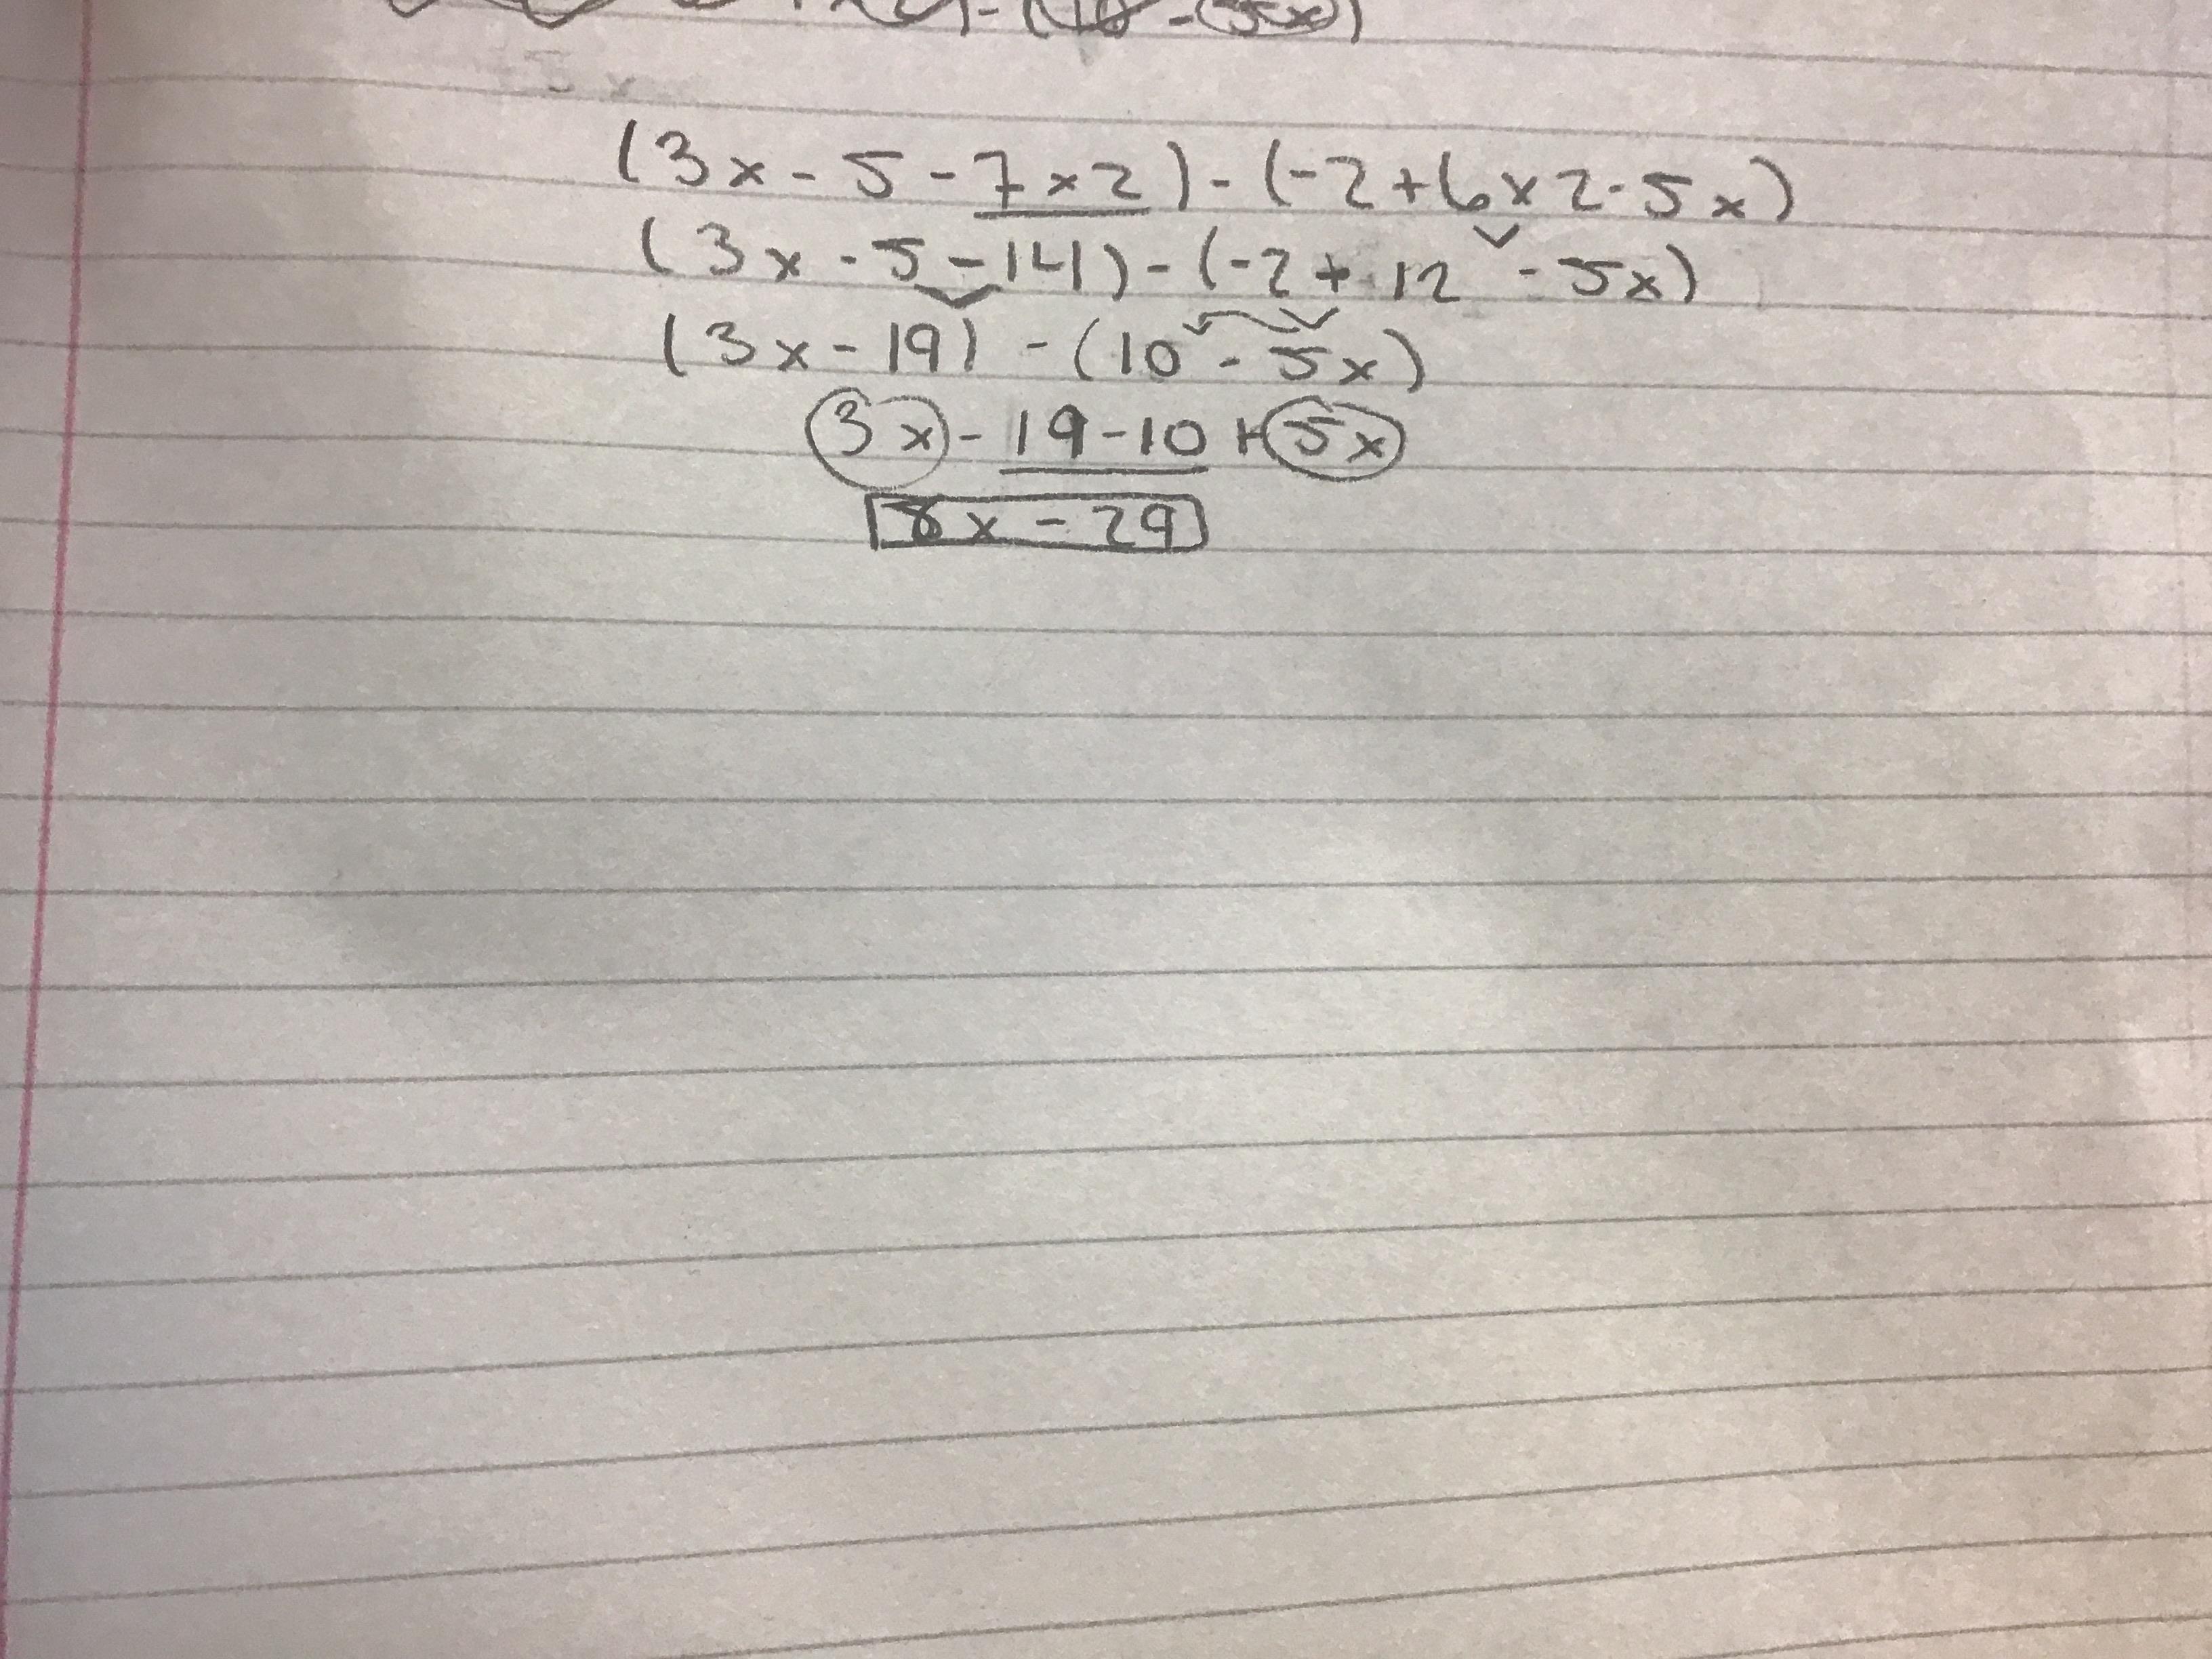 - (10 - 5x)
(3x - 5 - 7 x 2) - (-2 + 6 x 2 - 5x)
(3x - 5 - 14) - (-2 + 12 - 5x)
(3x - 19) - (10 - 5x)
3x - 19 - 10 + 5x
8x - 29